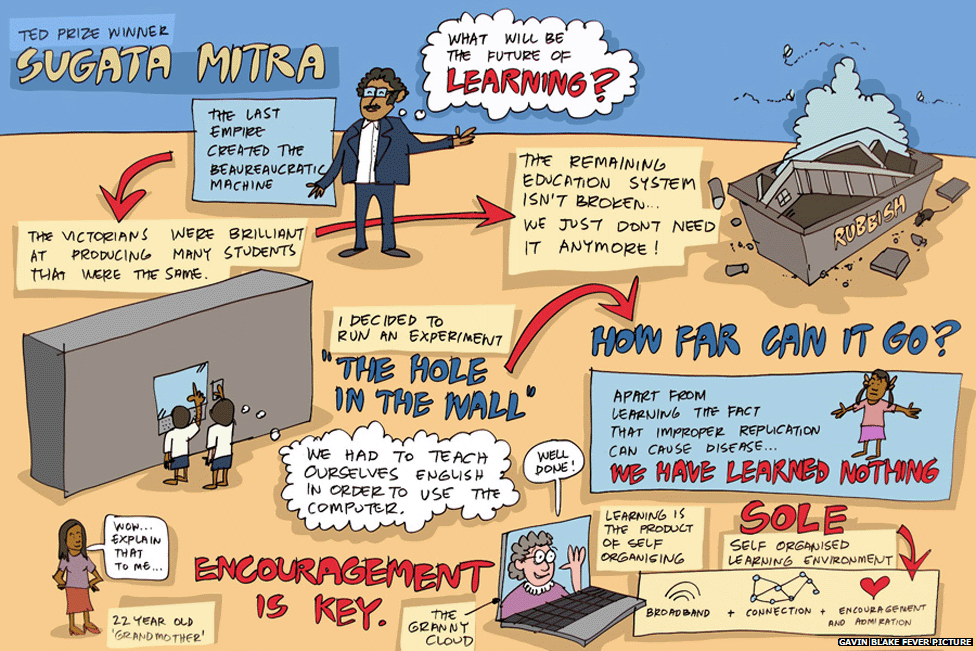 TED PRIZE WINNER
SUGATA MITRA
WHAT WILL BE
THE FUTURE OF
LEARNING?
THE LAST
EMPIRE
CREATED THE
BEAUREAUCRATIC
MACHINE
THE VICTORIANS WERE BRILLIANT
AT PRODUCING MANY STUDENTS
THAT WERE THE SAME.
THE REMAINING
EDUCATION SYSTEM
ISN'T BROKEN...
WE JUST DON'T NEED
IT ANYMORE!
RUBBISH
I DECIDED TO
RUN AN EXPERIMENT
"THE HOLE
IN THE WALL"
WE HAD TO TEACH
OURSELVES ENGLISH
IN ORDER TO USE THE
COMPUTER.
HOW FAR CAN IT GO?
APART FROM
LEARNING THE FACT
THAT IMPROPER REPLICATION
CAN CAUSE DISEASE...
WE HAVE LEARNED NOTHING
WOW...
EXPLAIN
THAT
TO ME...
22 YEAR OLD
'GRANDMOTHER'
ENCOURAGEMENT
IS KEY.
WELL
DONE!
THE
GRANNY
CLOUD
LEARNING IS
THE PRODUCT
OF SELF
ORGANISING
SOLE
SELF ORGANISED
LEARNING ENVIRONMENT
BROADBAND + CONNECTION + ENCOURAGEMENT
AND ADMIRATION
GAVIN BLAKE FEVER PICTURE